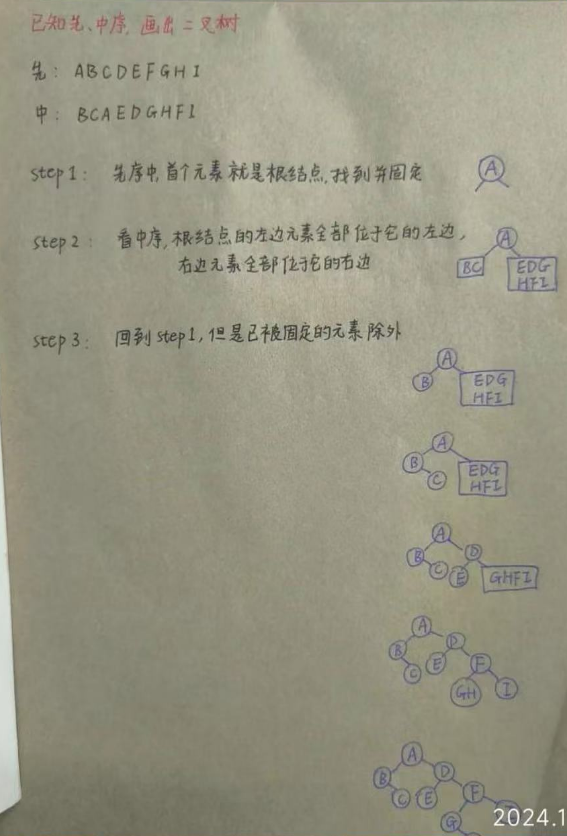 已知先、中序，画出二叉树
先： ABCDEFGHI
中： BCAEDGHFI
step1： 先序中，首个元素就是根结点，找到并固定
A
step2： 看中序，根结点的左边元素全部位于它的左边，
右边元素全部位于它的右边
A
BC
EDG
HFI
step3： 回到step1，但是已被固定的元素除外
A
B
EDG
HFI
A
B
C
EDG
HFI
A
B
D
C
E
GHFI
A
B
D
C
E
F
GH
I
A
B
D
C
E
F
G
2024.1